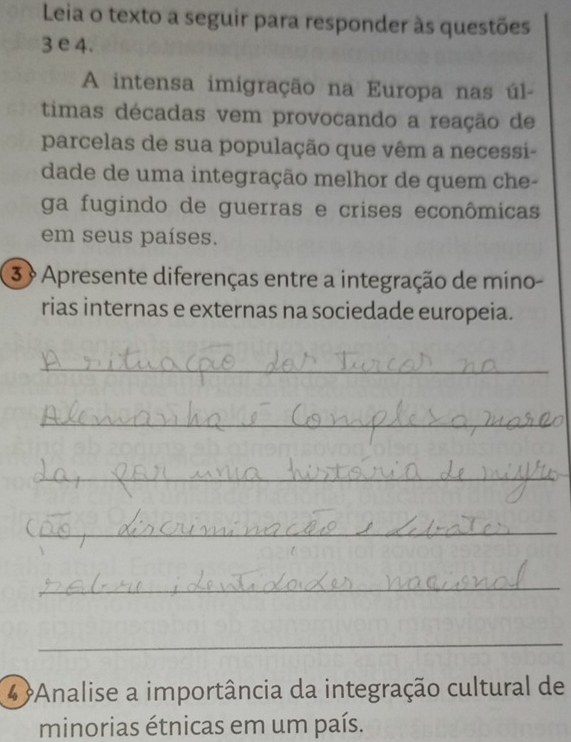 Leia o texto a seguir para responder às questões
3 e 4.
A intensa imigração na Europa nas úl-
timas décadas vem provocando a reação de
parcelas de sua população que vêm a necessi-
dade de uma integração melhor de quem che-
ga fugindo de guerras e crises econômicas
em seus países.
3 Apresente diferenças entre a integração de mino-
rias internas e externas na sociedade europeia.
A situação dos Turcos na
Alemanha é complexa, marca
da, por uma história de migra
ção, discriminação e debates
sobre identidades nacional
4 Analise a importância da integração cultural de
minorias étnicas em um país.